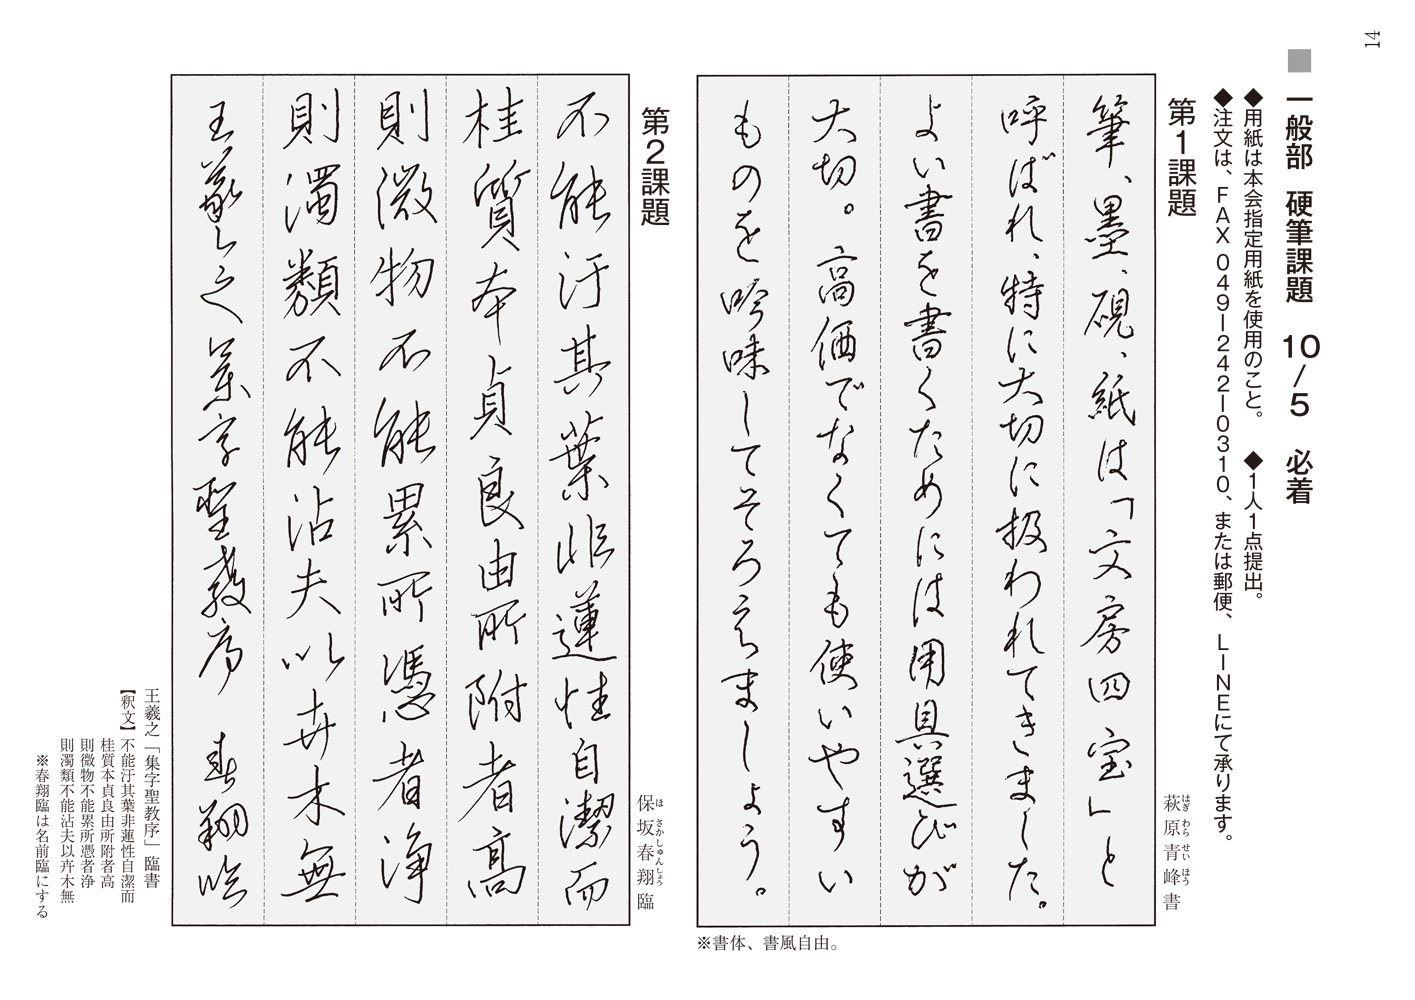 14
■ 一般部 硬筆課題 10/5 必着
◆用紙は本会指定用紙を使用のこと。 ◆1人1点提出。
◆注文は、FAX 049ー242ー0310、または郵便、LINEにて承ります。
第1課題
萩原青峰書
はぎわらせいほう
筆、墨、硯、紙は「文房四宝」と
呼ばれ、特に大切に扱われてきました。
よい書を書くためには用具選びが
大切。高価でなくても使いやすい
ものを吟味してそろえましょう。
※書体、書風自由。
第2課題
保坂春翔臨
ほさかしゅんしょう
不能汙其葉非蓮性自潔而
桂質本貞良由所附者高
則微物不能累所憑者浄
則濁類不能沾夫以卉木無
王羲之集字聖教序 春翔臨
王羲之「集字聖教序」臨書
【釈文】不能汙其葉非蓮性自潔而
桂質本貞良由所附者高
則微物不能累所憑者浄
則濁類不能沾夫以卉木無
※春翔臨は名前臨にする